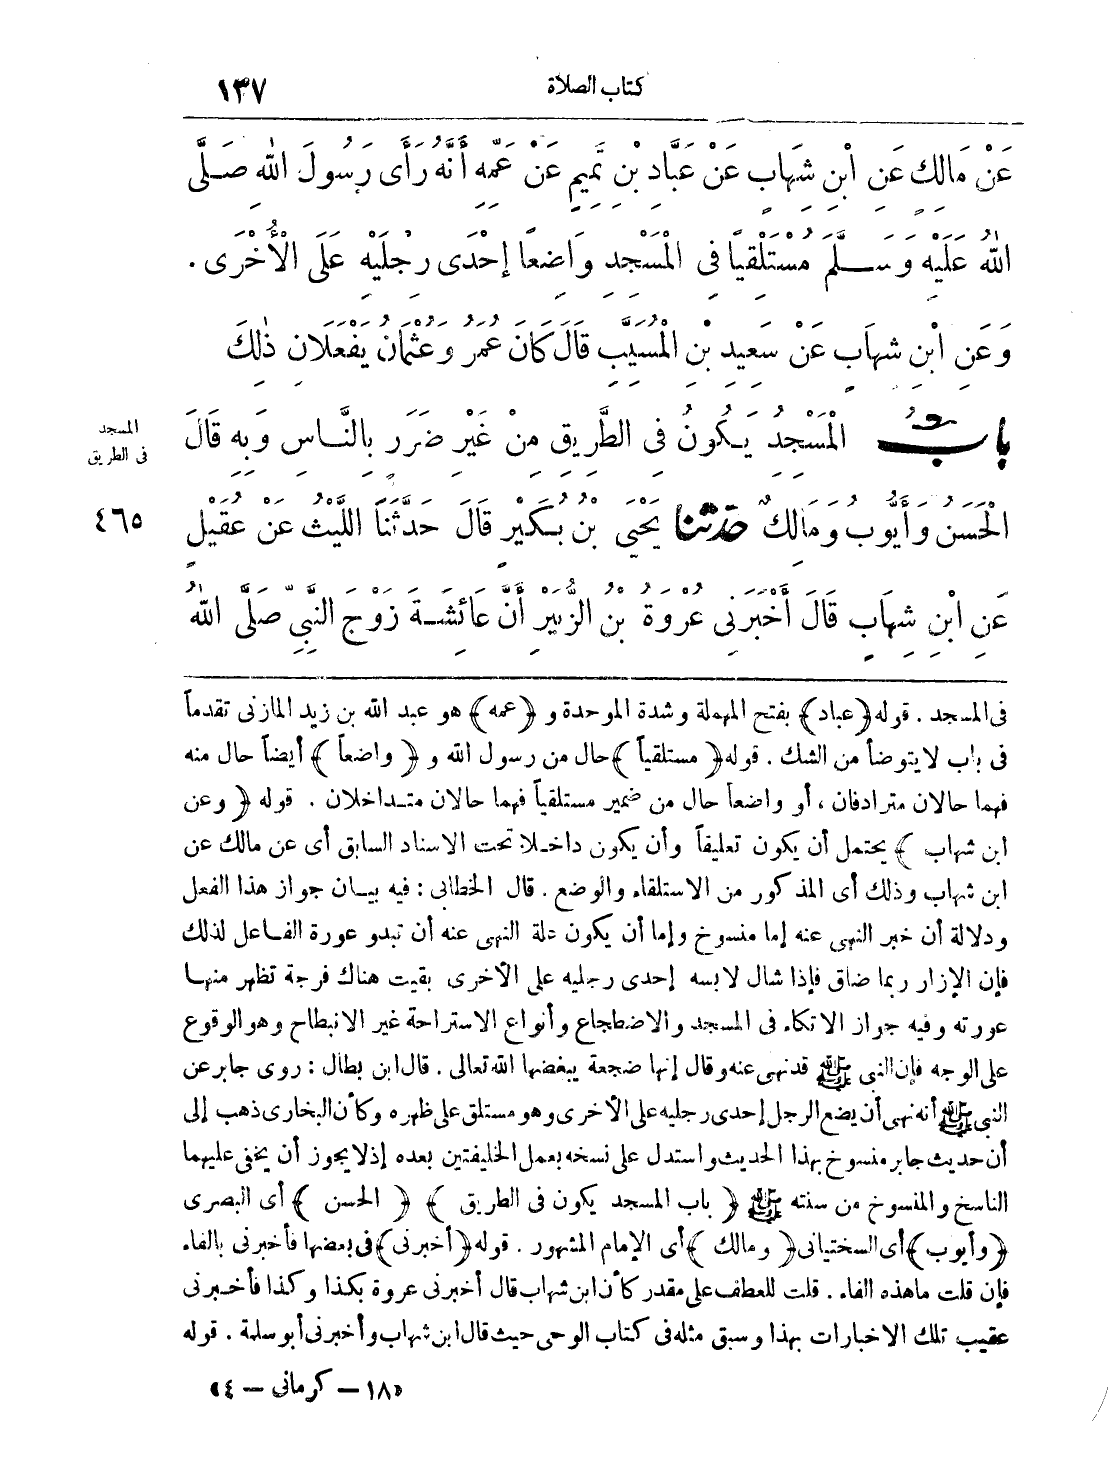 كتاب الصلاة ١٣٧
عَنْ مَالِكٍ عَنِ ابْنِ شِهَابٍ عَنْ عَبَّادِ بْنِ تَمِيمٍ عَنْ عَمِّهِ أَنَّهُ رَأَى رَسُولَ اللهِ صَلَّى
اللهُ عَلَيْهِ وَسَلَّمَ مُسْتَلْقِيًا فِى الْمَسْجِدِ وَاضِعًا إِحْدَى رِجْلَيْهِ عَلَى الْأُخْرَى .
وَعَنِ ابْنِ شِهَابٍ عَنْ سَعِيدِ بْنِ الْمُسَيَّبِ قَالَ كَانَ عُمَرُ وَعُثْمَانُ يَفْعَلَانِ ذَلِكَ
بابُ الْمَسْجِدُ يَكُونُ فِى الطَّرِيقِ مِنْ غَيْرِ ضَرَرٍ بِالنَّاسِ وَبِهِ قَالَ
المسجد
فى الطريق
الْحَسَنُ وَأَيُّوبُ وَمَالِكٌ حدثنا يَحْيَى بْنُ بُكَيْرٍ قَالَ حَدَّثَنَا اللَّيْثُ عَنْ عُقَيْلٍ
٤٦٥
عَنِ ابْنِ شِهَابٍ قَالَ أَخْبَرَنِى عُرْوَةُ بْنُ الزُّبَيْرِ أَنَّ عَائِشَةَ زَوْجَ النَّبِىِّ صَلَّى اللهُ
فى المسجد . قوله ﴿عباد﴾ بفتح المهملة وشدة الموحدة و ﴿عمه﴾ هو عبد الله بن زيد المازنى تقدماً
فى باب لا يتوضأ من الشك . قوله ﴿ مستلقياً ﴾ حال من رسول الله و ﴿ واضعاً ﴾ أيضاً حال منه
فهما حالان مترادفان ، أو واضعاً حال من ضمير مستلقياً فهما حالان متداخلان . قوله ﴿ وعن
ابن شهاب ﴾ يحتمل أن يكون تعليقاً وأن يكون داخلا تحت الاسناد السابق أى عن مالك عن
ابن شهاب وذلك أى المذكور من الاستلقاء والوضع . قال الخطابى : فيه بيان جواز هذا الفعل
ودلالة أن خبر النهى عنه إما منسوخ وإما أن يكون علة النهى عنه أن تبدو عورة الفاعل لذلك
فإن الإزار ربما ضاق فإذا شال لابسه إحدى رجليه على الأخرى بقيت هناك فرجة تظهر منها
عورته وفيه جواز الاتكاء فى المسجد والاضطجاع وأنواع الاستراحة غير الانبطاح وهو الوقوع
على الوجه فإن النبى ﷺ قد نهى عنه وقال إنها ضجعة يبغضها الله تعالى . قال ابن بطال : روى جابر عن
النبى ﷺ أنه نهى أن يضع الرجل إحدى رجليه على الأخرى وهو مستلق على ظهره وكأن البخارى ذهب إلى
أن حديث جابر منسوخ بهذا الحديث واستدل على نسخه بعمل الخليفتين بعده إذ لا يجوز أن يخفى عليهما
الناسخ والمنسوخ من سنته ﷺ ﴿ باب المسجد يكون فى الطريق ﴾ ﴿ الحسن ﴾ أى البصرى
﴿وأيوب﴾ أى السختيانى ﴿ ومالك ﴾ أى الإمام المشهور . قوله ﴿أخبرنى﴾ فى بعضها فأخبرنى بالفاء
فإن قلت ماهذه الفاء . قلت للعطف على مقدر كأن ابن شهاب قال أخبرنى عروة بكذا وكذا فأخبرنى
عقيب تلك الاخبارات بهذا وسبق مثله فى كتاب الوحى حيث قال ابن شهاب وأخبرنى أبو سلمة . قوله
«١٨ – كرمانى – ٤»